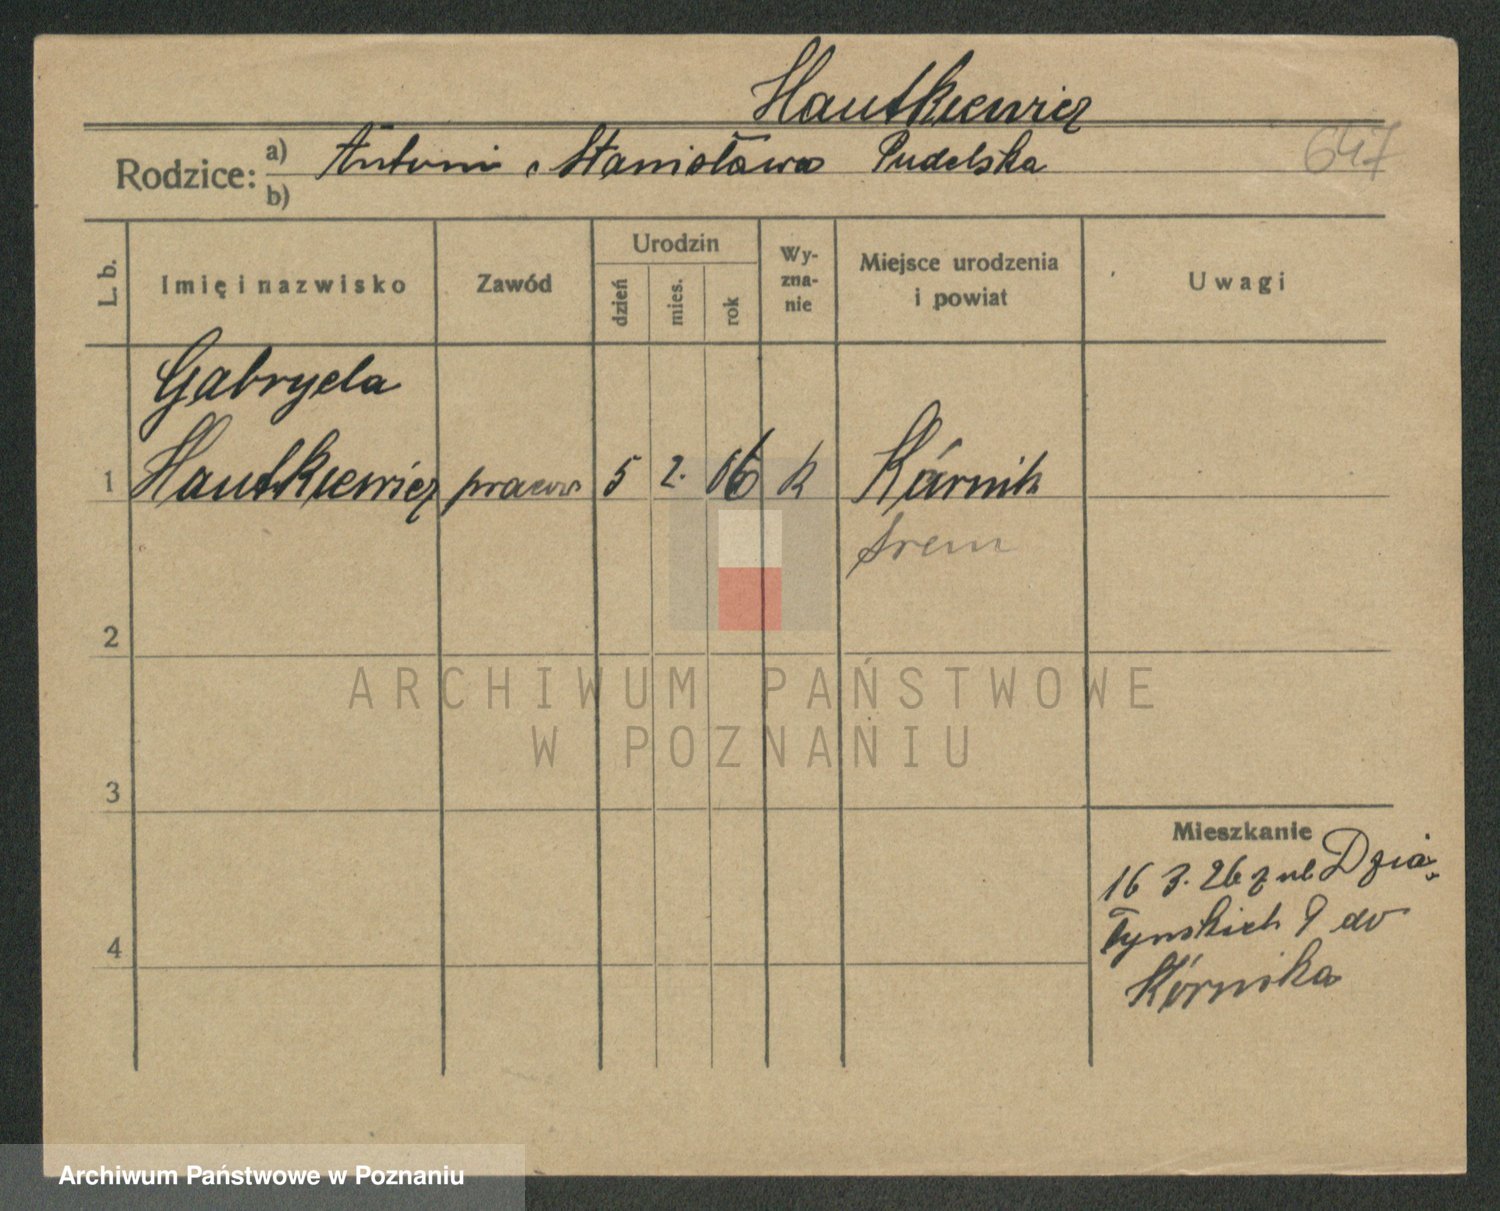 Hautkiewicz
Rodzice: a) Antoni i Stanisława Pudelska
b)
647
L. b.
Imię i nazwisko
Zawód
Urodzin
dzień
mies.
rok
Wy-
zna-
nie
Miejsce urodzenia
i powiat
Uwagi
Gabryela
1 Hautkiewicz pracow 5 2. 06 k Kórnik
Śrem
2
ARCHIWUM PAŃSTWOWE
W POZNANIU
3
Mieszkanie
16 3. 26 z ul Dzia-
4 łynskich 9 do
Kórnika
Archiwum Państwowe w Poznaniu